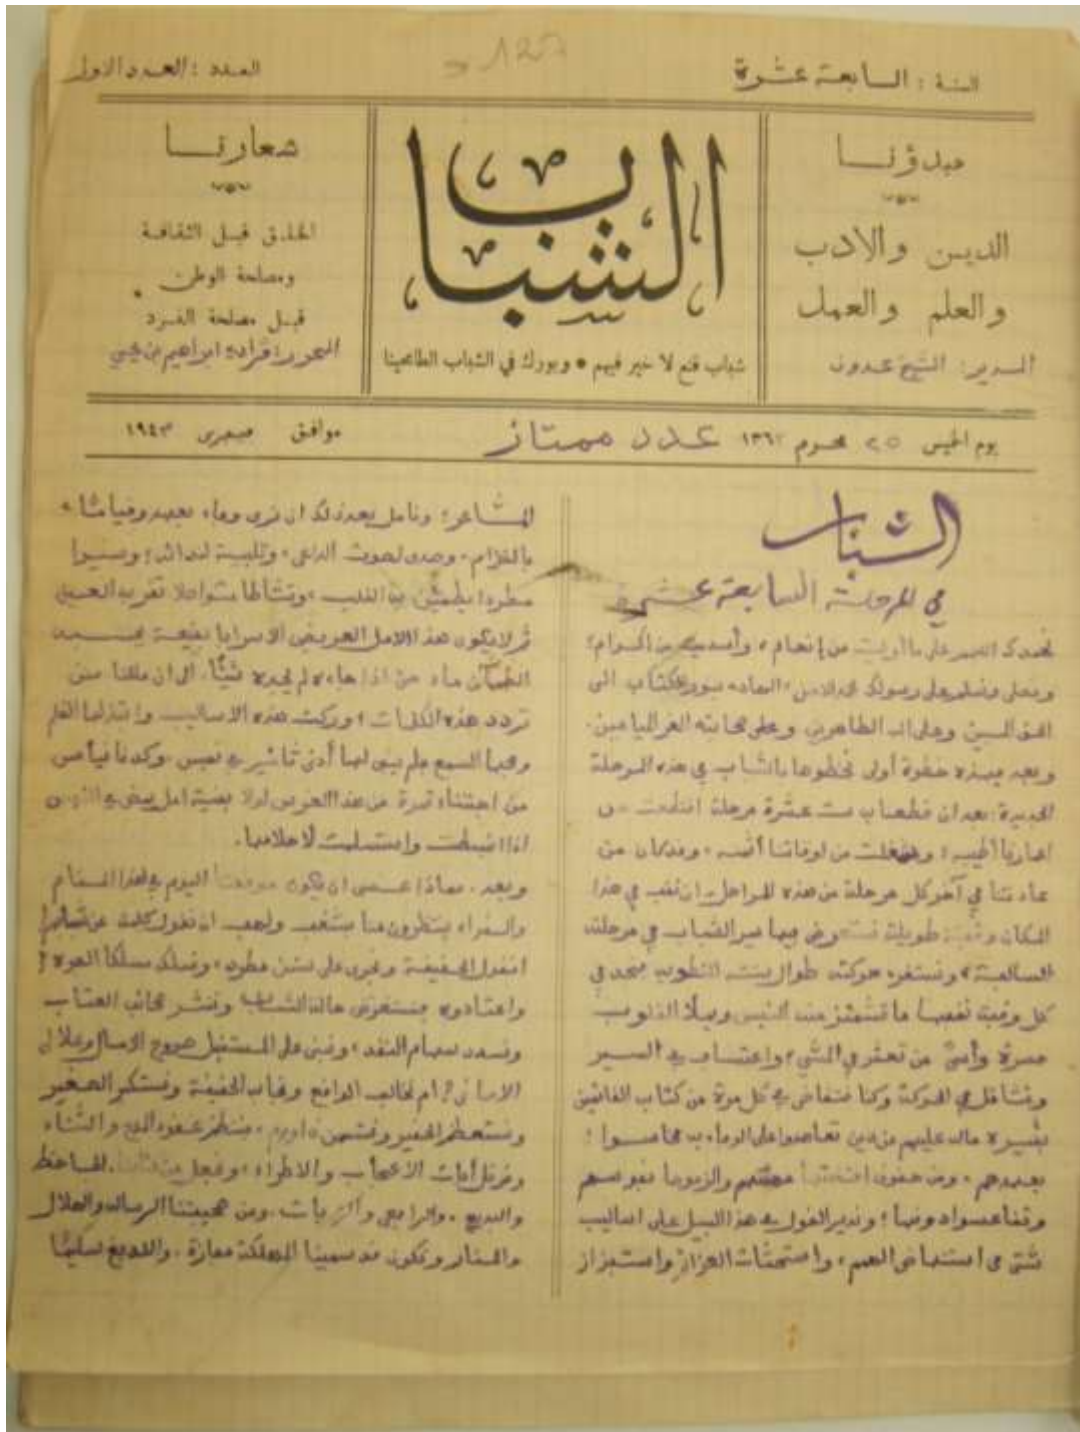 السنة : السابعة عشرة
127
العدد : العدد الاول
مبدؤنا
الديـن والادب
والعلم والعمل
المديـر: الشيخ عدون
الشباب
شباب قنع لا خير فيهم • وبورك في الشباب الطامحينا
شعارنـا
الخلق قبل الثقافة
ومصلحة الوطن
قبـل مصلحة الفرد
المحرر: قرادي ابراهيم بن يحيى
يوم الخميس ٢٥ محرم ١٣٦٢ عدد ممتاز موافق فيفري ١٩٤٣
الشباب
في المرحلة السابعة عشرة
نحمدك اللهم على ما أوليت من إنعام، وأسديت من إكرام؛
ونصلي ونسلم على رسولك محمد الامين، الهادي بنور الكتاب الى
الحق المبين وعلى اله الطاهرين وعلى صحابته الغر الميامين.
وبعد فهذه خطوة أولى نخطوها بالشباب في هذه المرحلة
الجديدة، بعد ان قطعنا به ست عشرة مرحلة اقتطعت من
اعمارنا أطيبه؛ من اوقاتنا أنفسه، وقد كان من
عادتنا في آخر كل مرحلة من هذه المراحل ان نقف في هذا
المكان وقفة طويلة نستعرض فيها سير الشباب في مرحلته
السالفة، ونستقرء حركته طوال سنته المنطوية فنجد في
كل وقفة نقفها ما تشمئز منه النفس ويملأ القلوب
حسرة وأسى من تعثر في المشي، واعتساف في السير
وتثاقل في الحركة وكنا نتغاضى في كل مرة من كتاب الفائتين
من دين تعاهدوا على الوفاء به فخاسوا؛
بعهدهم، ومن حقوق والزموها نفوسهم
وتقاعسوا دونها؛ وندير القول في هذا السبيل على اساليب
شتى من استنهاض الهمم، واستحثاث العزائم واستفزاز
المشاعر؛ ونأمل بعد ذلك ان نرى وفاء بعهد وقياما،
بالتزام، وصدى لصوت الداعي، وتلبية لندائه؛ وسيرا
مطردا يطمئن به القلب، ونشاطا متواصلا تقر به العين
ثم لا يكون هذا الامل العريض الا سرابا بقيعة يحسبه
الظمآن ماء حتى اذا جاءه لم يجده شيئا، الى ان مللنا من
تردد هذه الكلمات؛ وركت هذه الاساليب وابتذلها القلم
ومجها السمع فلم يبق لها أدنى تأثير في نفس، وكدنا نيأس
من اجتناء ثمرة من هذا الغرس لولا بقية امل
اذا انبسطت واستسلمت لاحلامها.
وبعد، فماذا عسى ان يكون موقفنا اليوم في هذا المقام
والقراء ينتظرون منا بشغف ولهف ان نقول
أنقول الحقيقة ونجري على سنن مطرد، ونسلك مسلكا
واعتادوه فنستعرض حالة الشباب وننشر صحائف العتاب
ونسدد سهام النقد، ونبني على المستقبل صروح الامال وعلالي
الاماني؟ أم نخالف الواقع ونجانب الحقيقة ونستكبر الصغير
ونستعظم الحقير ونستسمن ذا ورم، فننظم عقود المدح والثناء
ونرتل آيات الاعجاب والاطراء، ونجعل من الجاحظ
والبديع، والرافعي والزيات، ومن صحيفتنا الرسالة والهلال
والمنار ونكون قد سمينا المهلكة مفازة، واللديغ سليما